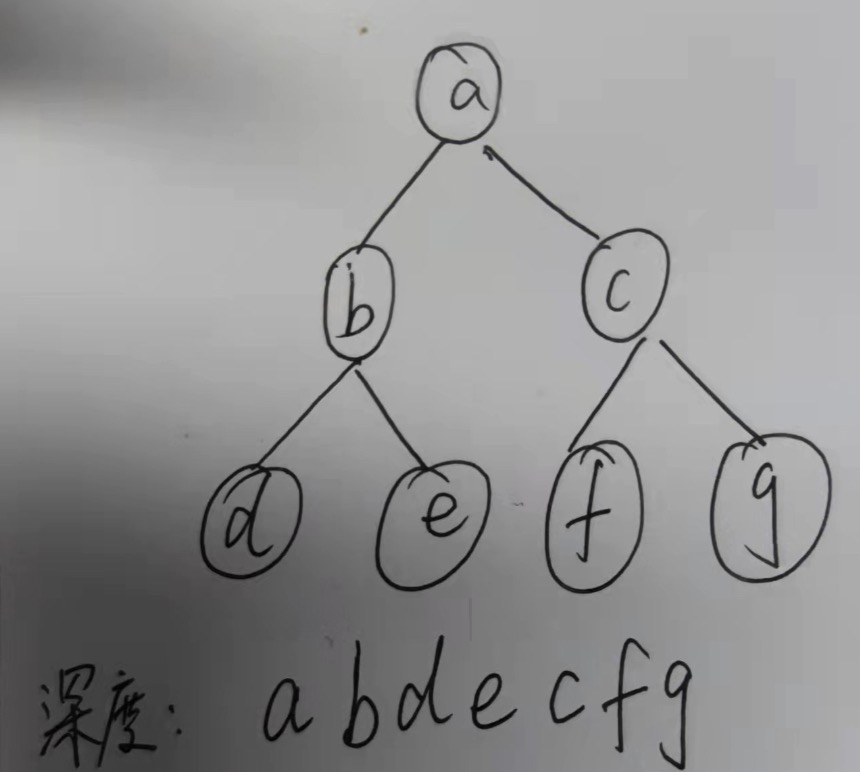 a
b c
d e f g
深度: a b d e c f g